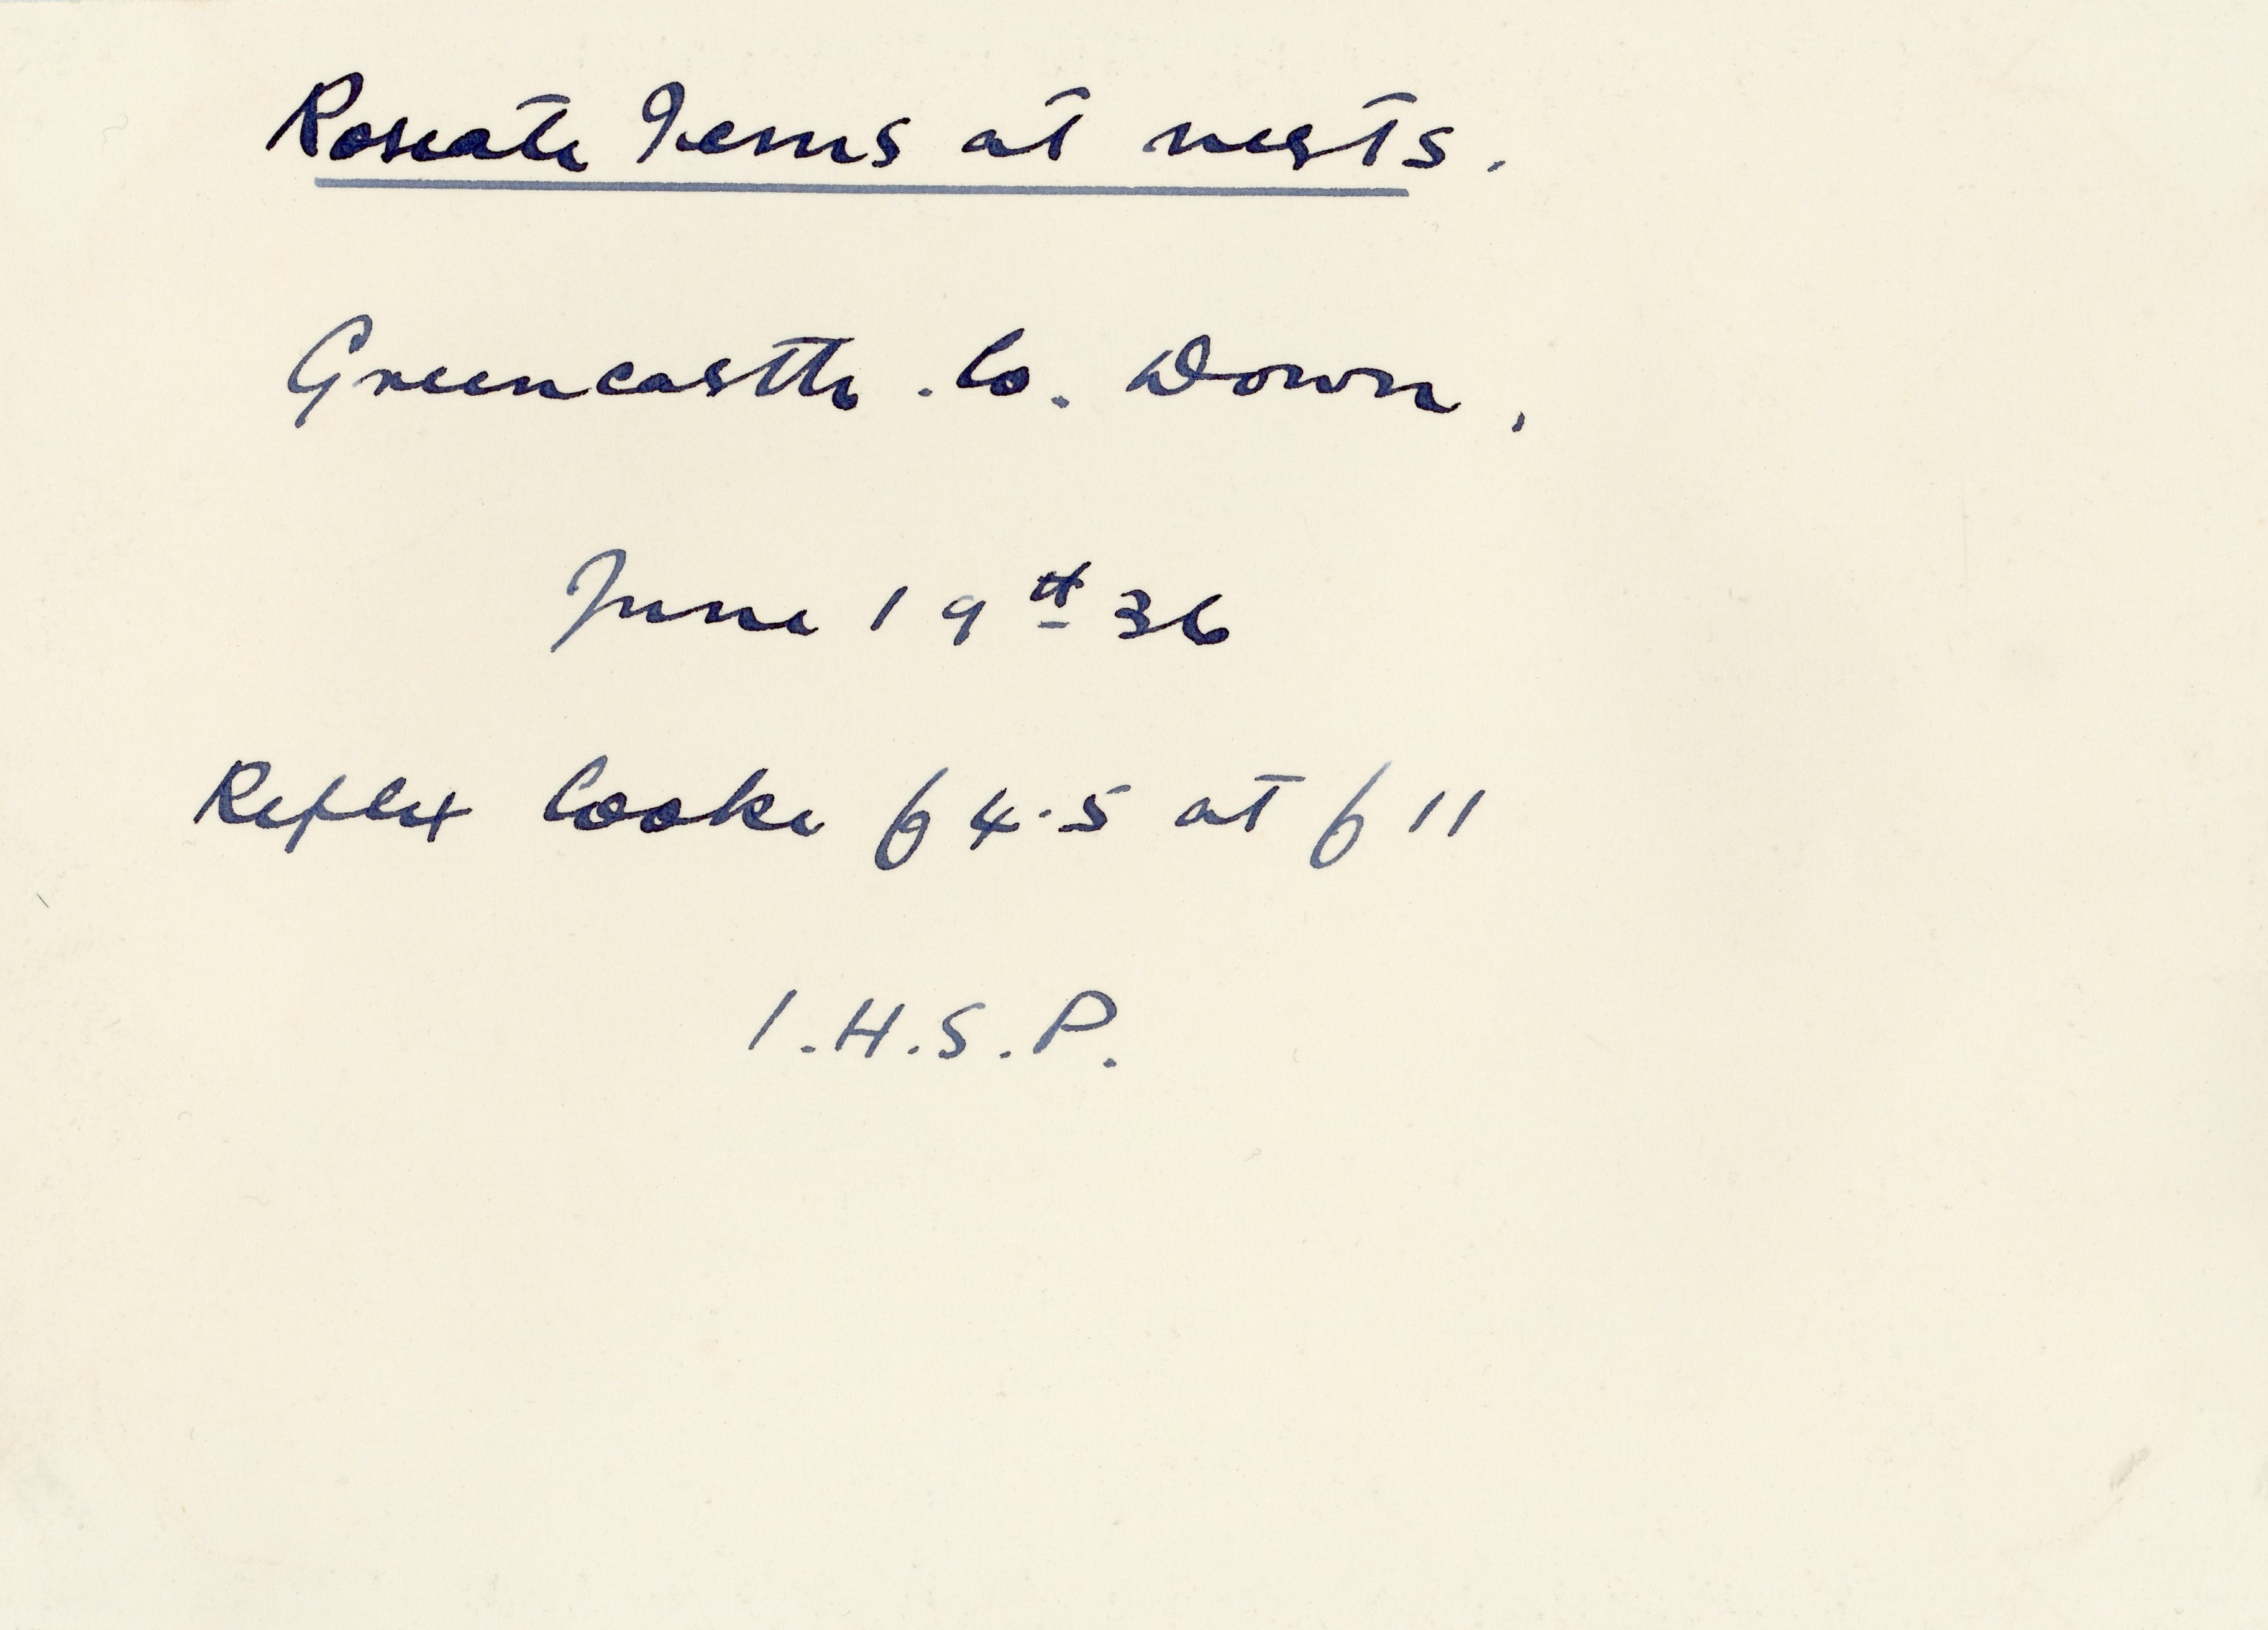 Roseate Terns at nests.
Greencastle. Co. Down.
June 19th 36
Reflex Cooke f4.5 at f11
I.H.S.P.